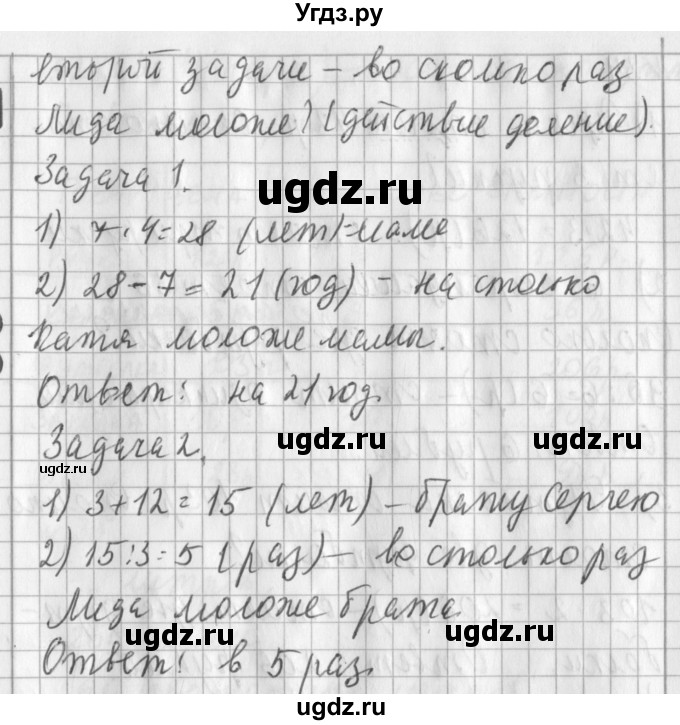 Угдз.ру
второй задачи – во сколько раз
Лида моложе? (действие деление).
Задача 1.
ugdz.ru
1) 7 · 4 = 28 (лет) – маме
2) 28 – 7 = 21 (год) – на столько
Катя моложе мамы.
Ответ: на 21 год.
ugdz.ru ugdz.ru
Задача 2.
ugdz.ru
1) 3 + 12 = 15 (лет) – брату Сергею
2) 15 : 3 = 5 (раз) – во столько раз
Лида моложе брата.
ugdz.ru ugdz.ru
Ответ: в 5 раз.
ugdz.ru